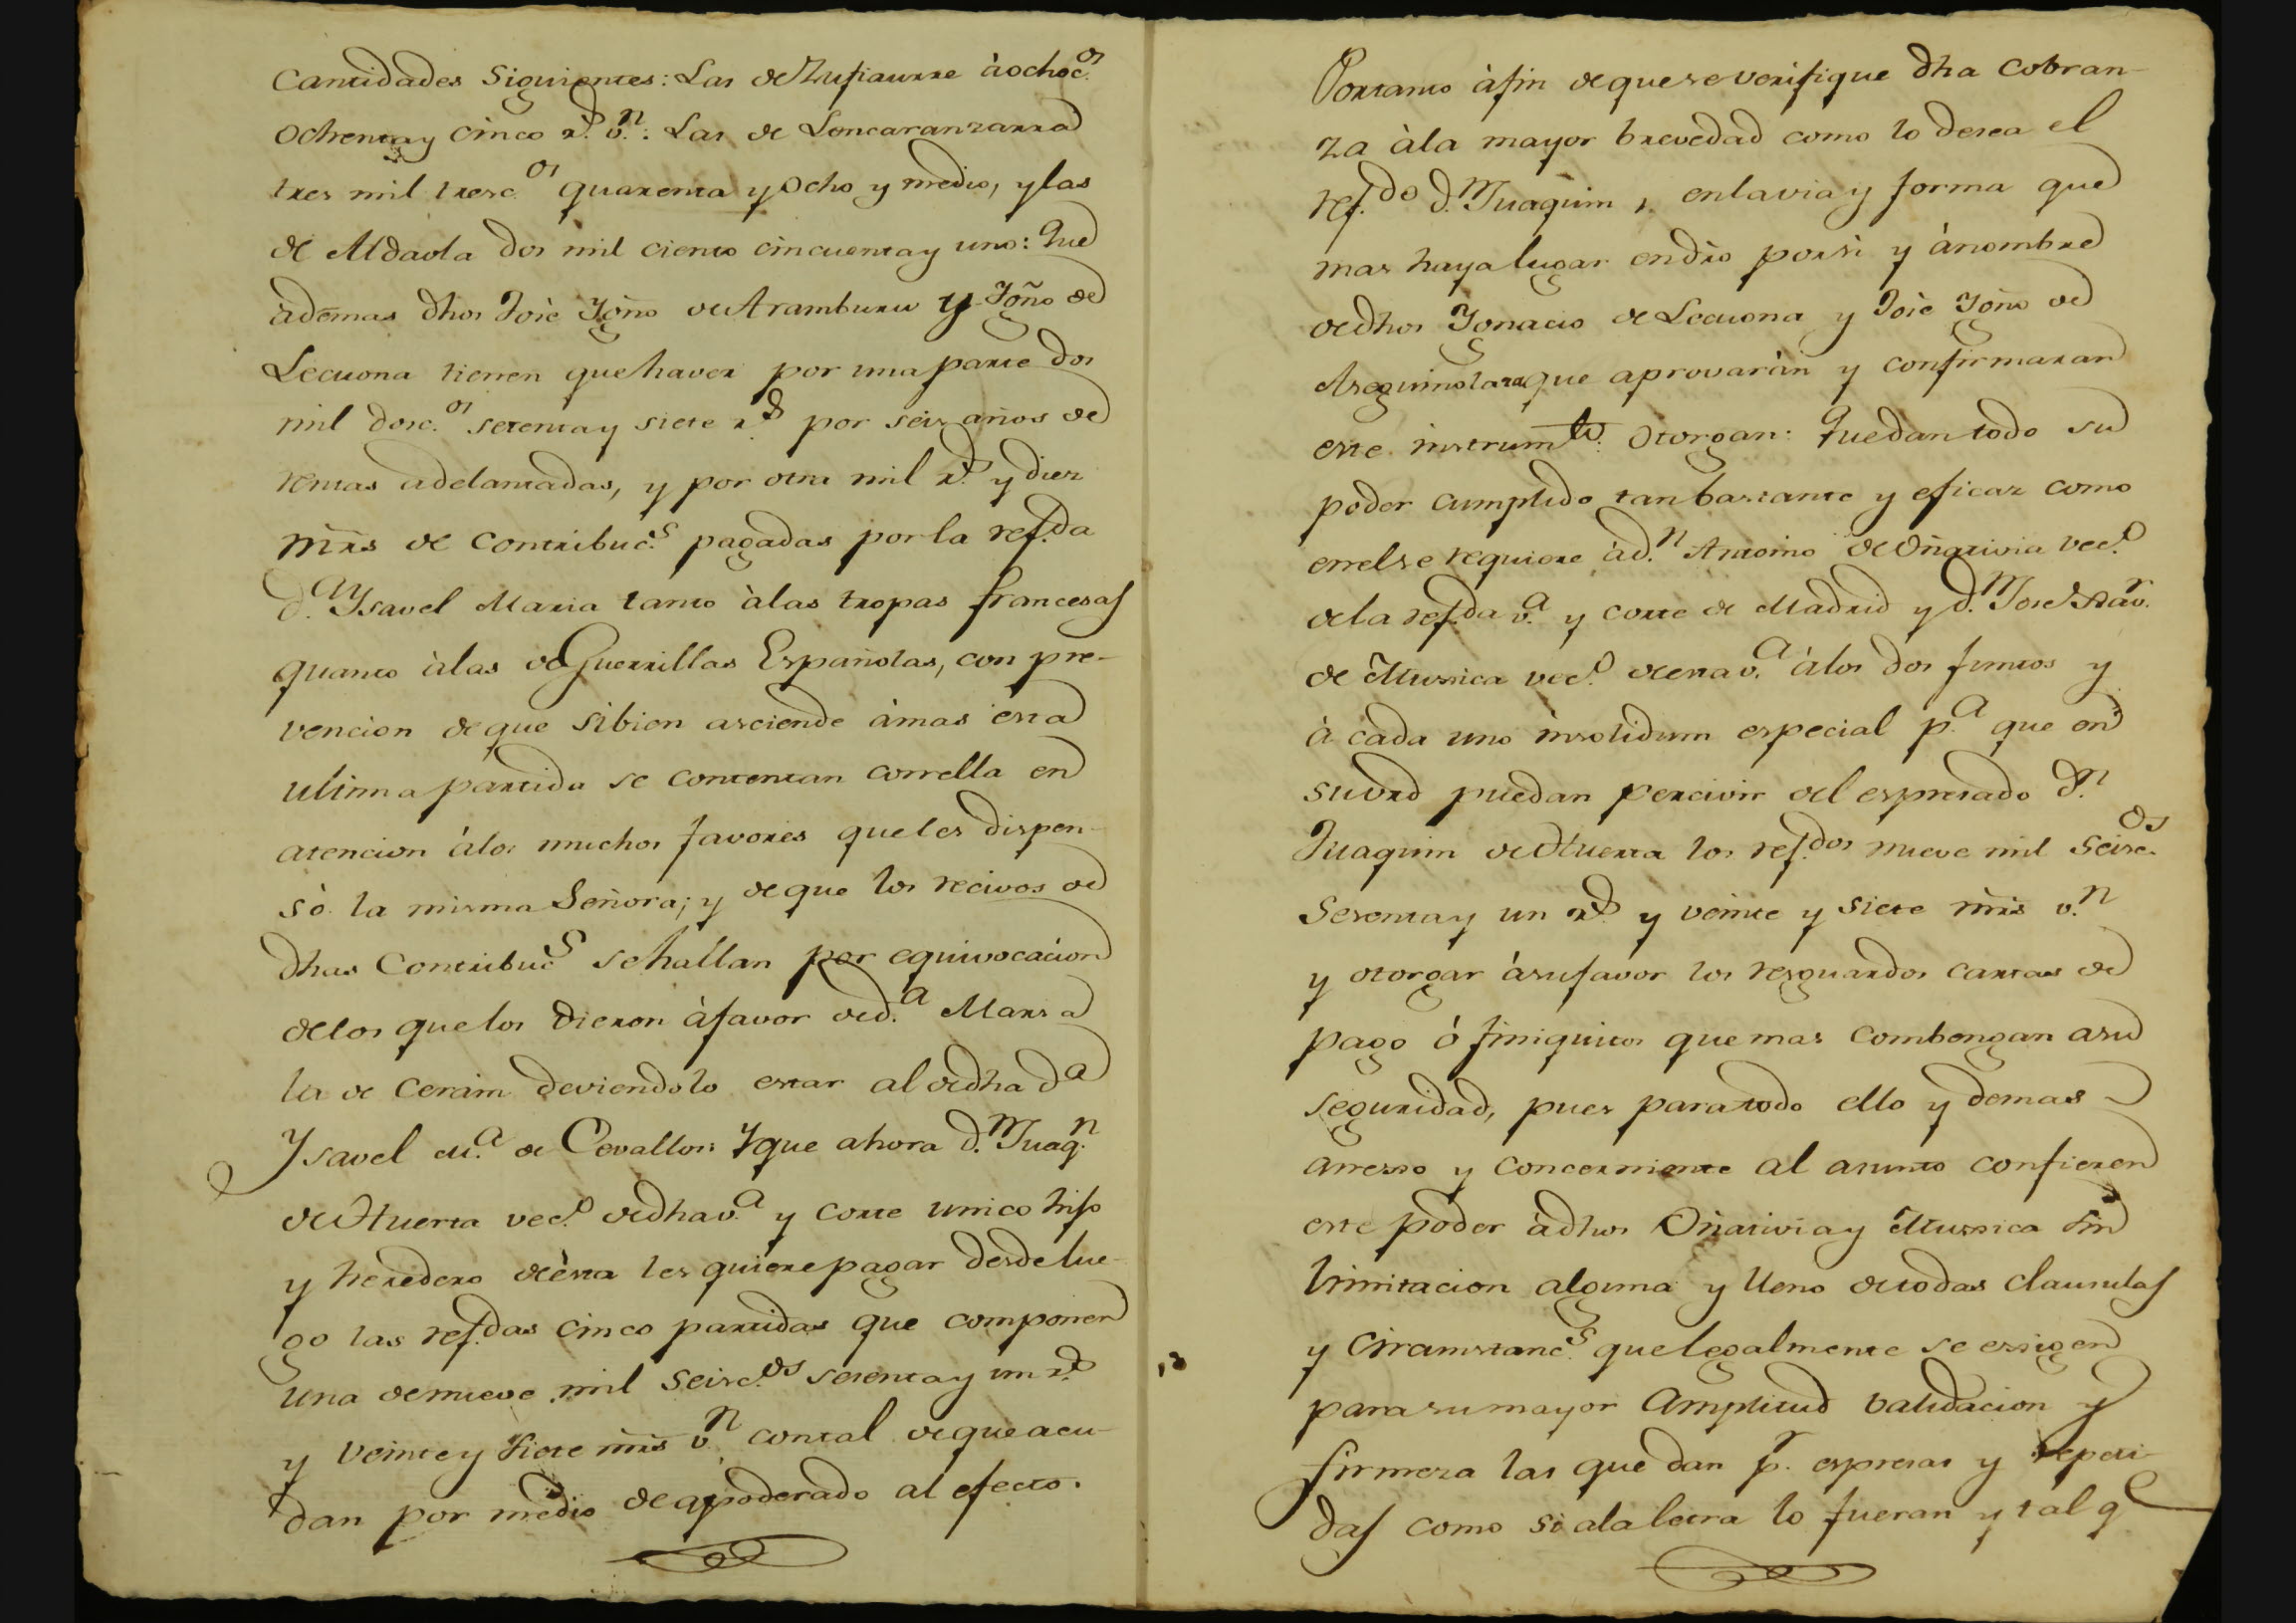 Cantidades Siguientes: Las de Zufiaurre à ochoc.os
Ochenta y cinco r.s v.n: Las de Loncaranzarra
tres mil tresc.os quarenta y Ocho y medio, y las
de Aldaola dos mil ciento cincuenta y uno: Que
ademas dhos José Ygño de Aramburu y Ygño de
Lecuona tienen que haver por una parte dos
mil dosc.os setenta y siete r.s por seis años de
rentas adelantadas, y por otra mil r.s y diez
mrs de Contribuc.s pagadas por la ref.da
d.a Ysavel Maria tanto à las tropas francesas
quanto à las de Guerrillas Españolas, con pre-
vencion de que si bien asciende à mas esta
ultima partida se contentan con ella en
atencion à los muchos favores que les dispen-
só la misma Señora; y de que los recivos de
dhas Contribuc.s se hallan por equivocacion
de los que los dieron à favor de d.a Marsa
la de Cerain deviendolo estar al de dha d.a
Ysavel M.a de Cevallos: Y que ahora d.n Juaq.n
de Huerta vec.o de dha v.a y corte unico hijo
y heredero de ésta les quiere pagar desde lue-
go las ref.das cinco partidas que componen
una de nueve mil seisc.os setenta y un r.s
y veinte y siete mrs v.n con tal de que acu-
dan por medio de apoderado al efecto.
Portanto à fin de que se verifique dha cobran-
za à la mayor brevedad como lo desea el
ref.do d.n Juaquin, en la via y forma que
mas haya lugar en dro por si y à nombre
de dhos Ygnacio de Lecuona y José Ygño de
Aseguinolaza que aprovaràn y confirmaran
este instrum.to Otorgan: Que dan todo su
poder cumplido tan bastante y eficaz como
en el se requiere à d.n Antonio de Oñativia vec.o
de la ref.da v.a y corte de Madrid y d.n José Xav.r
de Mussica vec.o de esta v.a à los dos juntos y
à cada uno insolidum especial p.a que en
su vrd puedan percivir del espresado d.n
Juaquin de Huerta los ref.dos nueve mil Seisc.os
Setenta y un r.s y veinte y siete mrs v.n
y otorgar à su favor los resguardos cartas de
pago ó finiquitos que mas combengan a su
seguridad, pues para todo ello y demas
annesso y concerniente al asunto confieren
este poder à dhos Oñativia y Mussica sin
limitacion alguna y lleno de todas clausulas
y circunstanc.s que legalmente se essigen
para su mayor Amplitud validacion y
firmeza las que dan p.r espresas y repeti-
das como si a la letra lo fueran y tal q.e